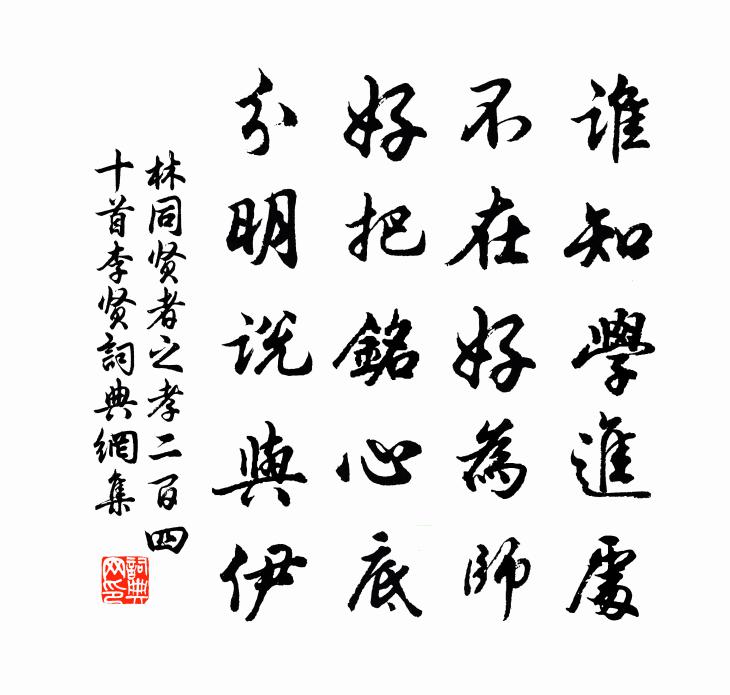 誰知學進處
不在好為師
好把銘心底
分明說與伊
林同贤者之孝二百四
十首李贤詞典網集
詞典
网印